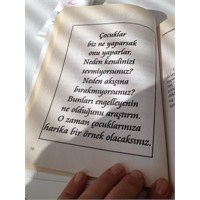 Çocuklar
biz ne yaparsak
onu yaparlar.
Neden kendinizi
sevmiyorsunuz?
Neden akışına
bırakmıyorsunuz?
Bunları engelleyenin
ne olduğunu araştırın.
O zaman çocuklarınıza
harika bir örnek olacaksınız.